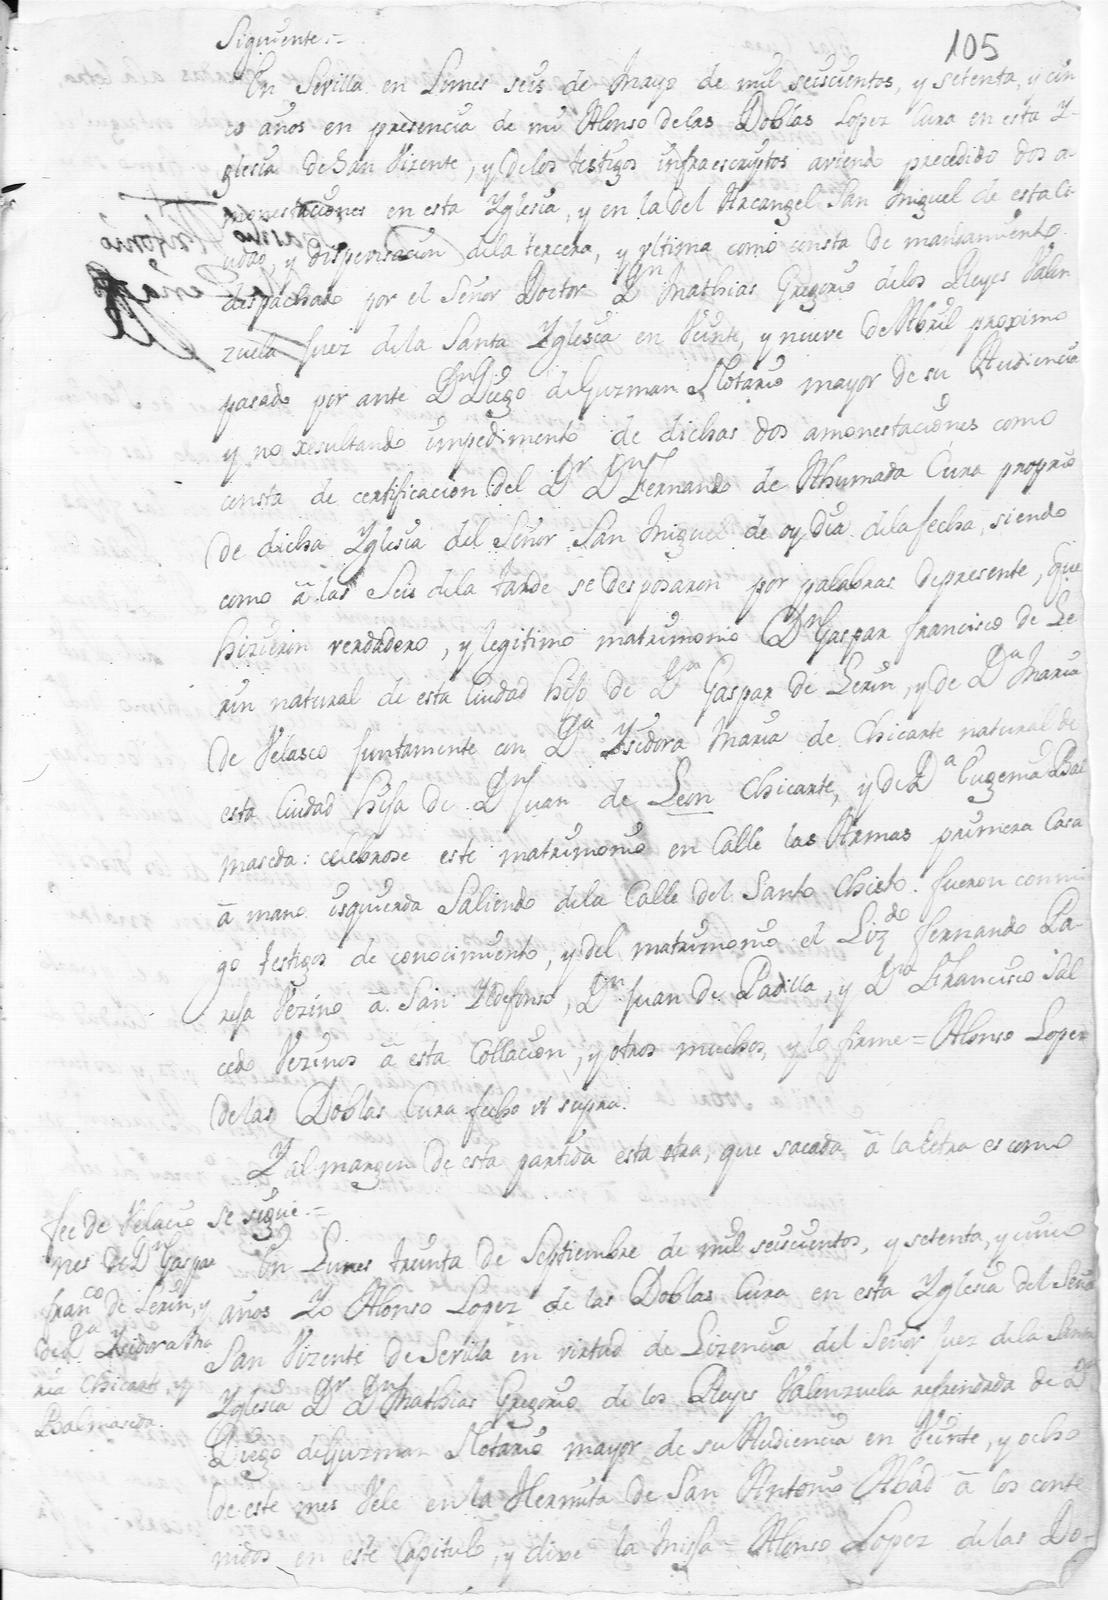 105
Siguiente.=
En Sevilla en Lunes seis de Mayo de mil seiscientos, y setenta, y cin
co años en presencia de mi Alonso de las Doblas Lopez Cura en esta Y-
glesia de San Vizente, y de los testigos infraescryptos aviendo precedido dos a-
monestaciones en esta Yglesia, y en la del Arcangel San Miguel de esta Ci
udad, y dispensacion de la tercera, y vltima como consta de mandamiento
despachado por el Señor Doctor Dn Mathias Gregorio de los Reyes Valen
zuela Juez de la Santa Yglesia en Veinte, y nueve de Abril proximo
pasado por ante Dn Diego de Guzman Notario mayor de su Audiencia
y no resultando impedimento de dichas dos amonestaciones como
consta de certificacion del Dr Dn Fernando de Ahumada Cura proprio
de dicha Yglesia del Señor San Miguel de oy dia de la fecha, siendo
como â las Seis de la tarde se desposaron por palabras de presente, que
hizieron verdadero, y legitimo matrimonio Dn Gaspar Francisco de Le
rin natural de esta Ciudad hijo de Dn Gaspar de Lerin, y de Da Maria
de Velasco juntamente con Da Ysidora Maria de Chicarte natural de
esta Ciudad hija de Dn Juan de Leon Chicarte, y de Da Eugenia Bal
maseda: celebrose este matrimonio en Calle las Armas primera Casa
â mano isquierda Saliendo de la Calle del Santo Christo. fueron conmi
go testigos de conocimiento, y del matrimonio el Lizdo Fernando Pa-
reja Vezino â San Ildefonso, Dn Juan de Padilla, y Dn Francisco Sal
cedo Vezinos â esta Collacion, y otros muchos, y lo firme = Alonso Lopez
de las Doblas Cura fecho vt supra.
Y al margen de esta partida esta otra, que sacada â la letra es como
se sigue.=
fee de Velacio
nes de Dn Gaspar
Franco de Lerin, y
de Da Ysidora Ma
ria Chicarte, y
Balmaseda.
En Lunes treinta de Septiembre de mil seiscientos, y setenta, y cinco
años Yo Alonso Lopez de las Doblas Cura en esta Yglesia del Señor
San Vizente de Sevilla en virtud de Lizencia del Señor Juez de la Santa
Yglesia Dr Dn Mathias Gregorio de los Reyes Valenzuela refrendada de Dn
Diego de Guzman Notario mayor de su Audiencia en Veinte, y ocho
de este mes Vele en la Hermita de San Antonio Abad â los conte
nidos en este Capitulo, y dixe la Missa = Alonso Lopez de las Do-